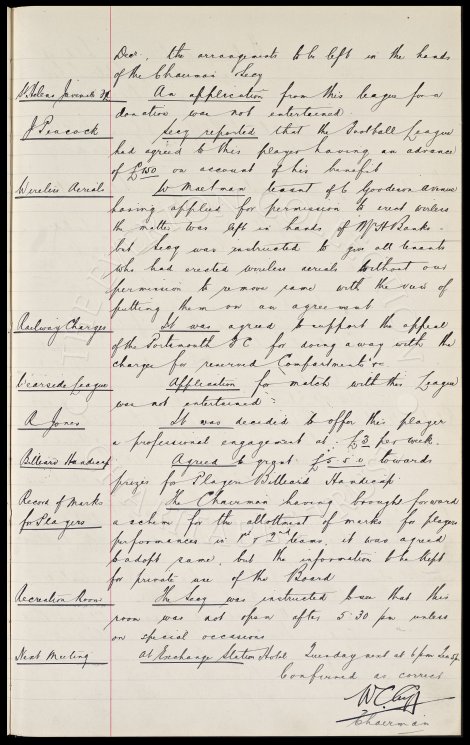 Decr, the arrangements to be left in the hands
of the Chairman Secy
St Helens Juvenile
An application from this league for a
donation was not entertained
J Peacock
Secy reported that the Football League
had agreed to this player having an advance
of £150 on account of his benefit
Wireless Aerials
W tenant of 6 Goodison Avenue
having applied for permission to erect wireless
the matter was left in hands of Mr H Banks.
but Secy was instructed to give all tenants
who had erected wireless aerials without our
permission to remove same with the view of
putting them on an agreement
Railway Charges
It was agreed to support the appeal
of the Portsmouth F C for doing away with the
charges for reserved Compartments
Wearside League
Application for match with this League
was not entertained
A Jones
It was decided to offer this player
a professional engagement at £3 per week.
Billiard Handicap
Agreed to grant £5 5 0 towards
prizes for Player Billiard Handicap.
Record of Marks
for Players
The Chairman having brought forward
a scheme for the allotment of marks for players
performances in 1st & 2nd teams, it was agreed
to adopt same, but the information to be kept
for private use of the Board
Recreation Room
The Secy was instructed that this
room was not open after 5.30 pm unless
on special occasions
Next Meeting
At Exchange Station Hotel Tuesday next at 6 pm
Confirmed as correct
W C Cuff
Chairman